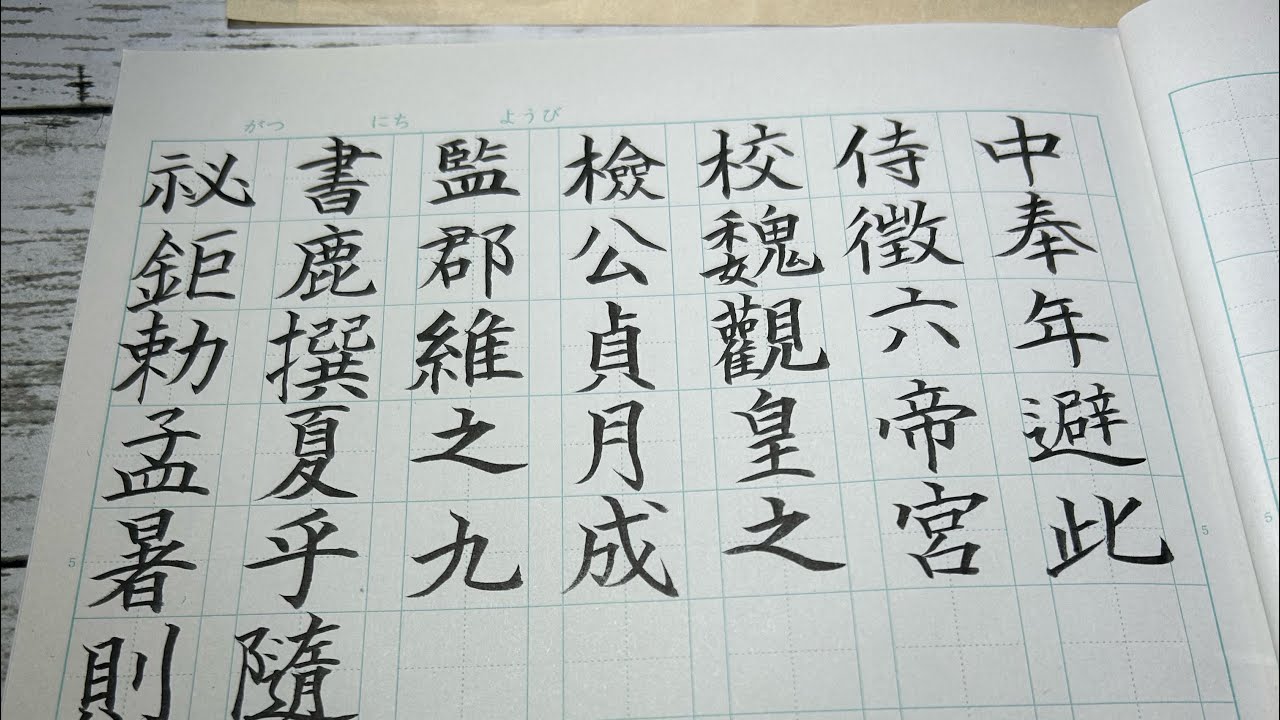 がつ にち ようび
祕書監檢校侍中
鉅鹿郡公魏徵奉
勅撰維貞觀六年
孟夏之月皇帝避
暑乎九成之宮此
則隨
5
5
5